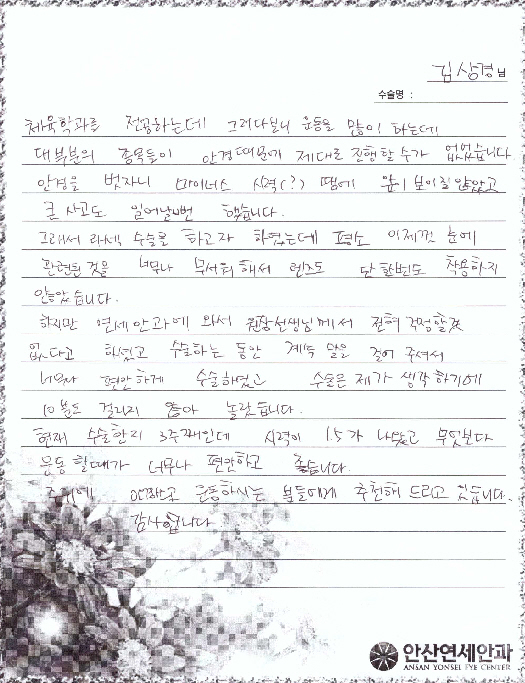 김상경님
수술명 :
체육학과를 전공하는데 그러다보니 운동을 많이 하는데
대부분의 종목들이 안경때문에 제대로 진행할 수가 없었습니다
안경을 벗자니 마이너스 시력(?) 땜에 앞이 보이질 않았고
큰 사고도 일어날뻔 했습니다.
그래서 라섹 수술을 하고자 하였는데 평소 이제껏 눈에
관련된것을 너무나 무서워해서 렌즈도 단 한번도 착용하지
않았습니다.
하지만 연세안과에 와서 원장선생님께서 전혀 걱정할것
없다고 하셨고 수술하는 동안 계속 말은 걸어 주셔서
너무나 편안하게 수술하였고 수술은 제가 생각하기에
10분도 걸리지 않아 놀랐습니다.
현재 수술한지 3주째인데 시력이 1.5가 나왔고 무엇보다
운동 할때가 너무나 편안하고 좋습니다.
주위에 운동하시는 분들에게 추천해 드리고 있습니다.
감사합니다
안산연세안과
ANSAN YONSEI EYE CENTER